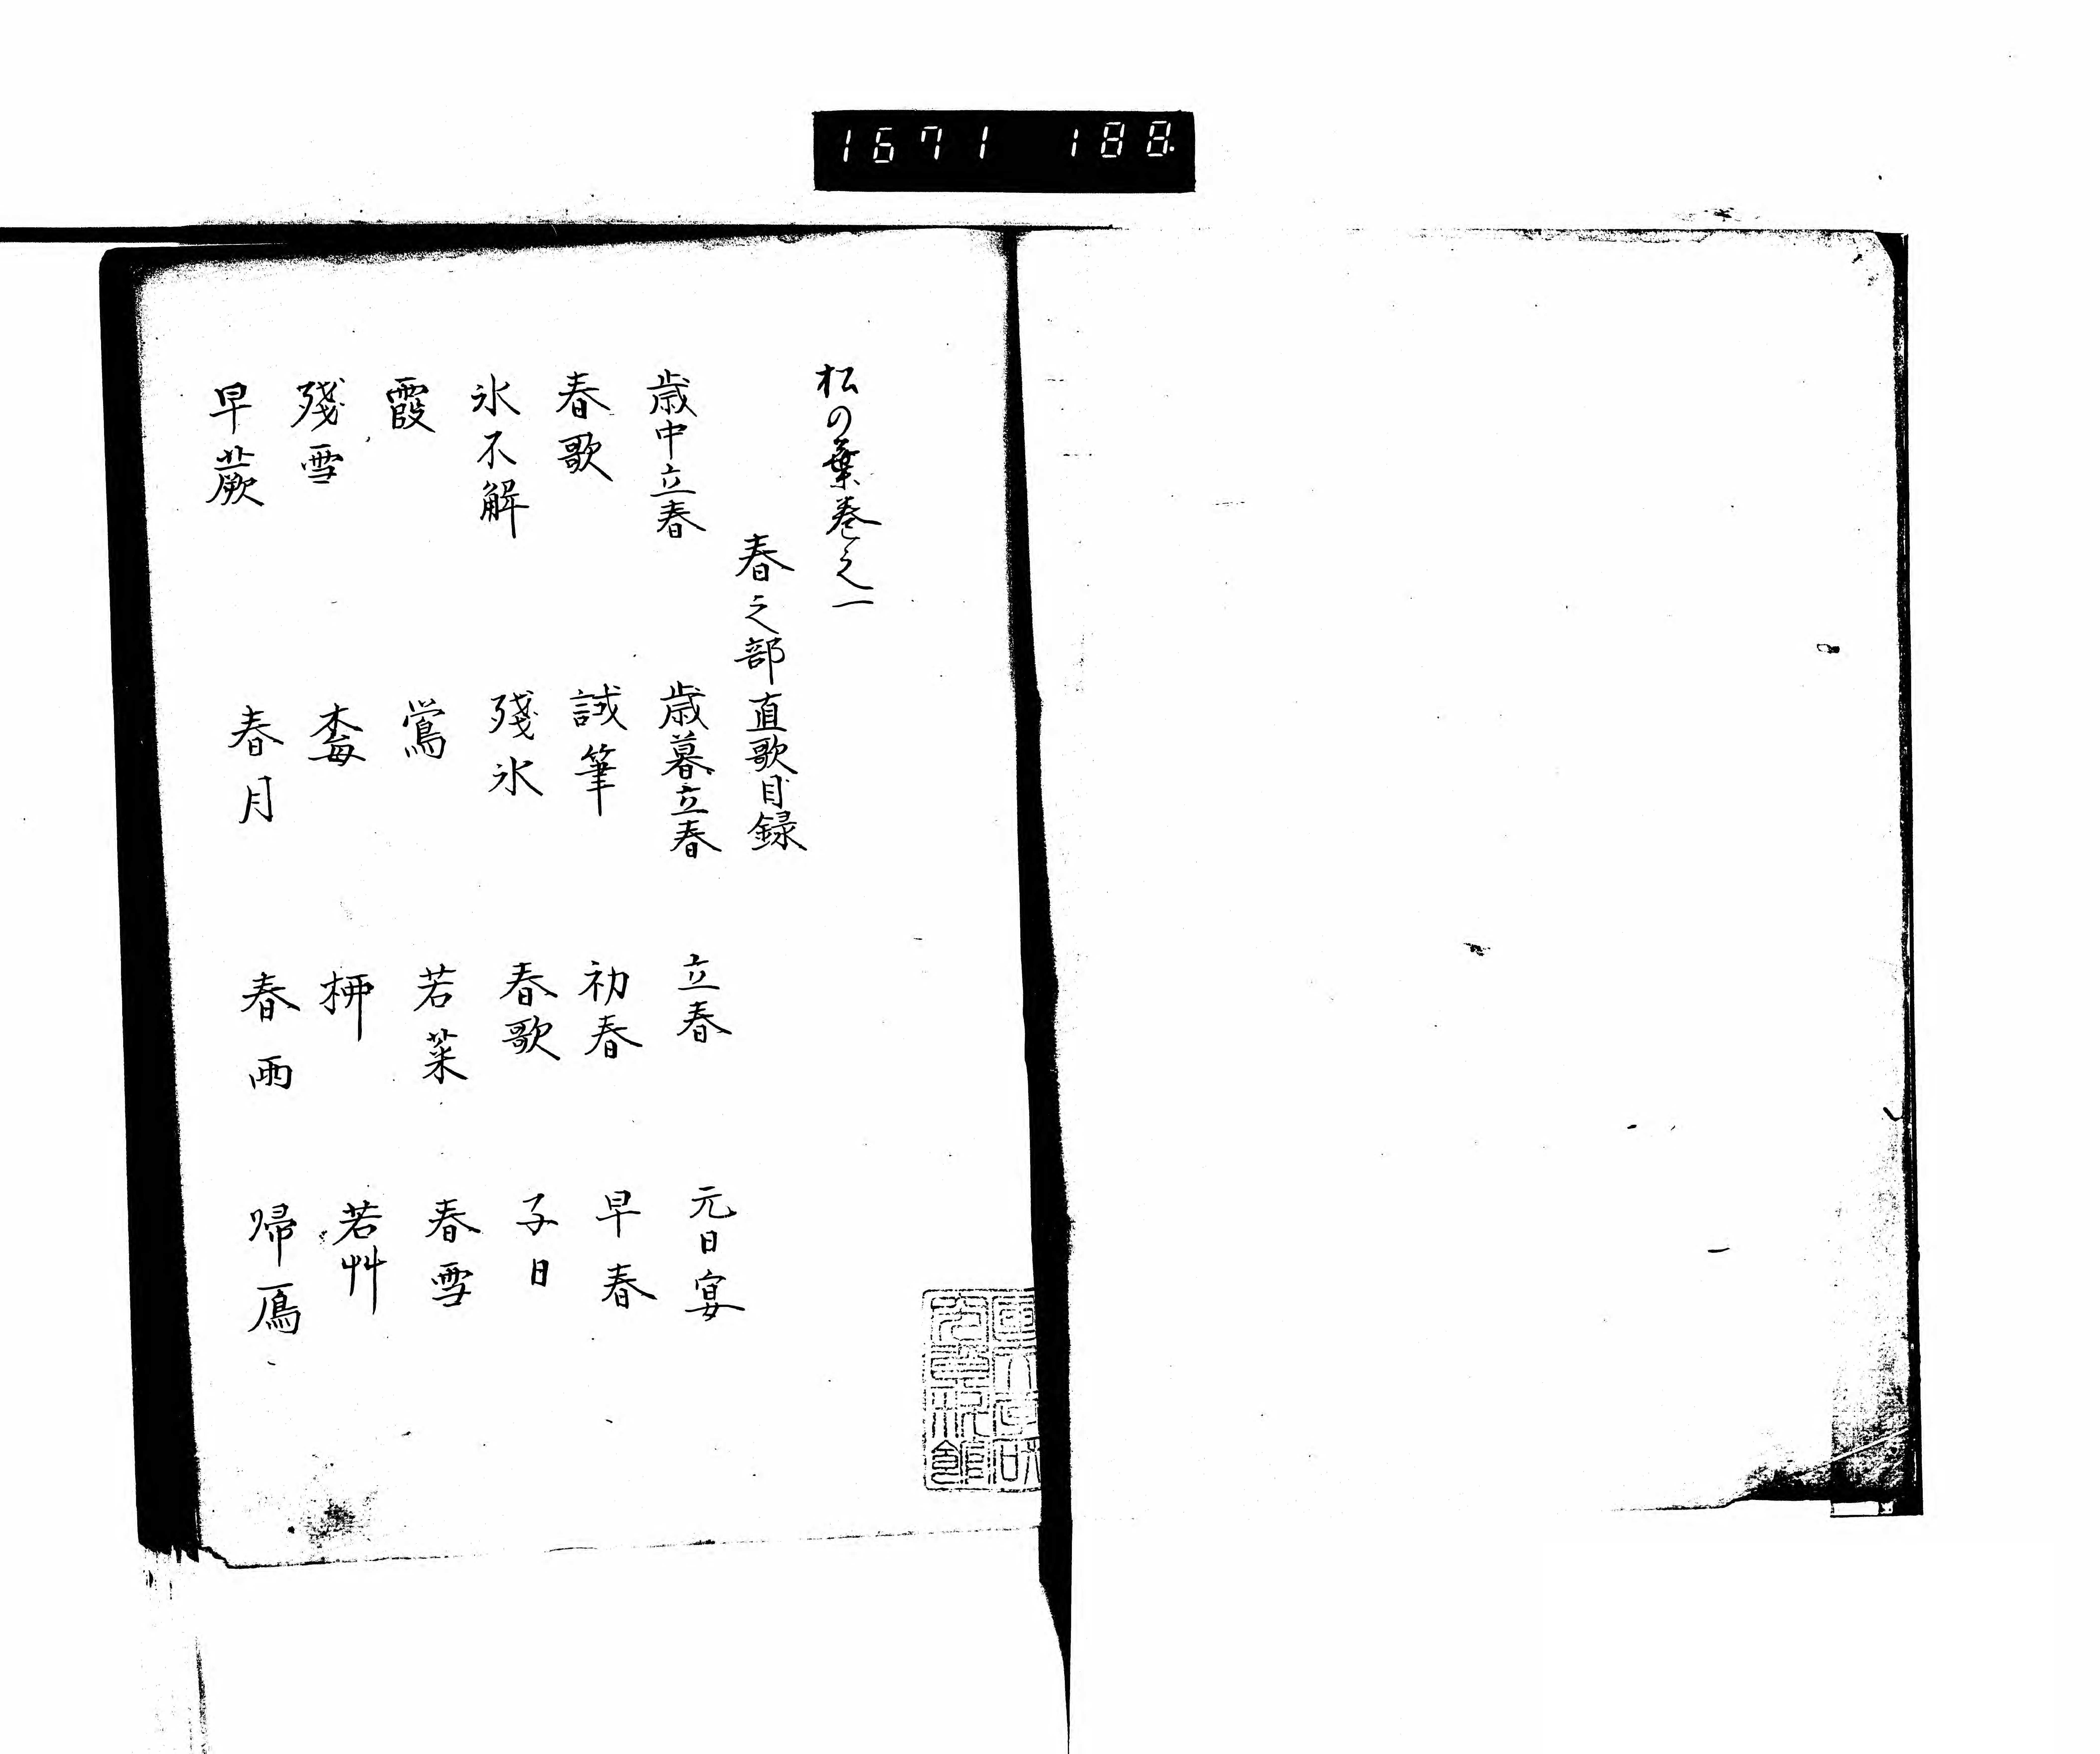 1671 188
松の葉巻之一
春之部直歌目録
歳中立春 歳暮立春 立春 元日宴
春歌 試筆 初春 早春
氷不解 殘氷 春歌 子日
霞 鶯 若菜 春雪
殘雪 梅 柳 若艸
早蕨 春月 春雨 帰鴈
國文學研
究資料館